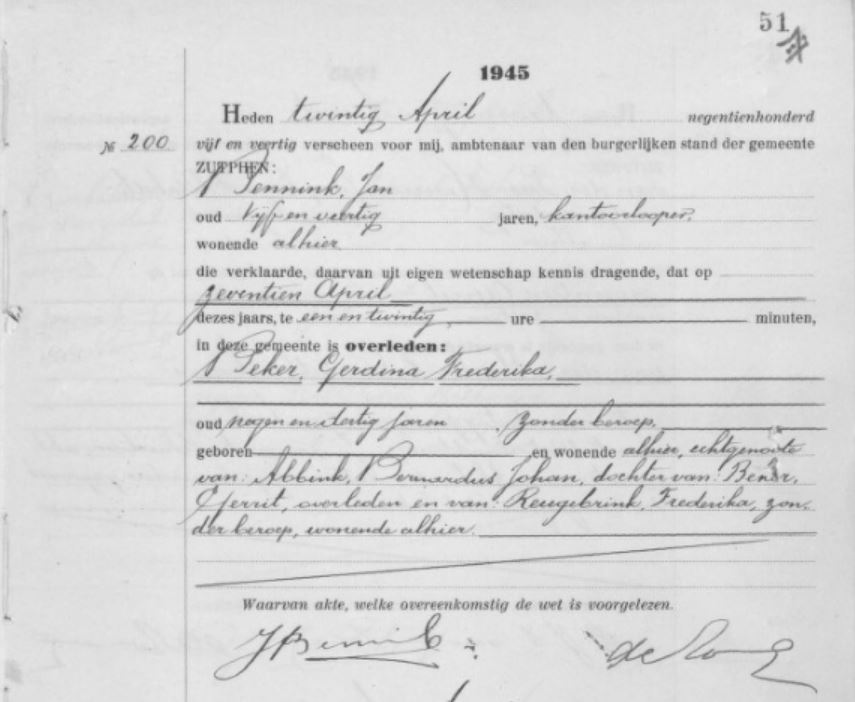 51
1945
Heden twintig April negentienhonderd
№ 200 vijf en veertig verscheen voor mij, ambtenaar van den burgerlijken stand der gemeente
ZUTPHEN:
Jan
oud vijf en veertig jaren, kantoorlooper,
wonende alhier
die verklaarde, daarvan uit eigen wetenschap kennis dragende, dat op
zeventien April
dezes jaars, te een en twintig ure minuten,
in deze gemeente is overleden:
Gerdina Frederika,
oud negen en dertig jaren, zonder beroep,
geboren en wonende alhier, echtgenoote
van: Abbink, Bernardus Johan, dochter van:
Gerrit, overleden en van: Reugebrink, Frederika, zon-
der beroep, wonende alhier.
Waarvan akte, welke overeenkomstig de wet is voorgelezen.